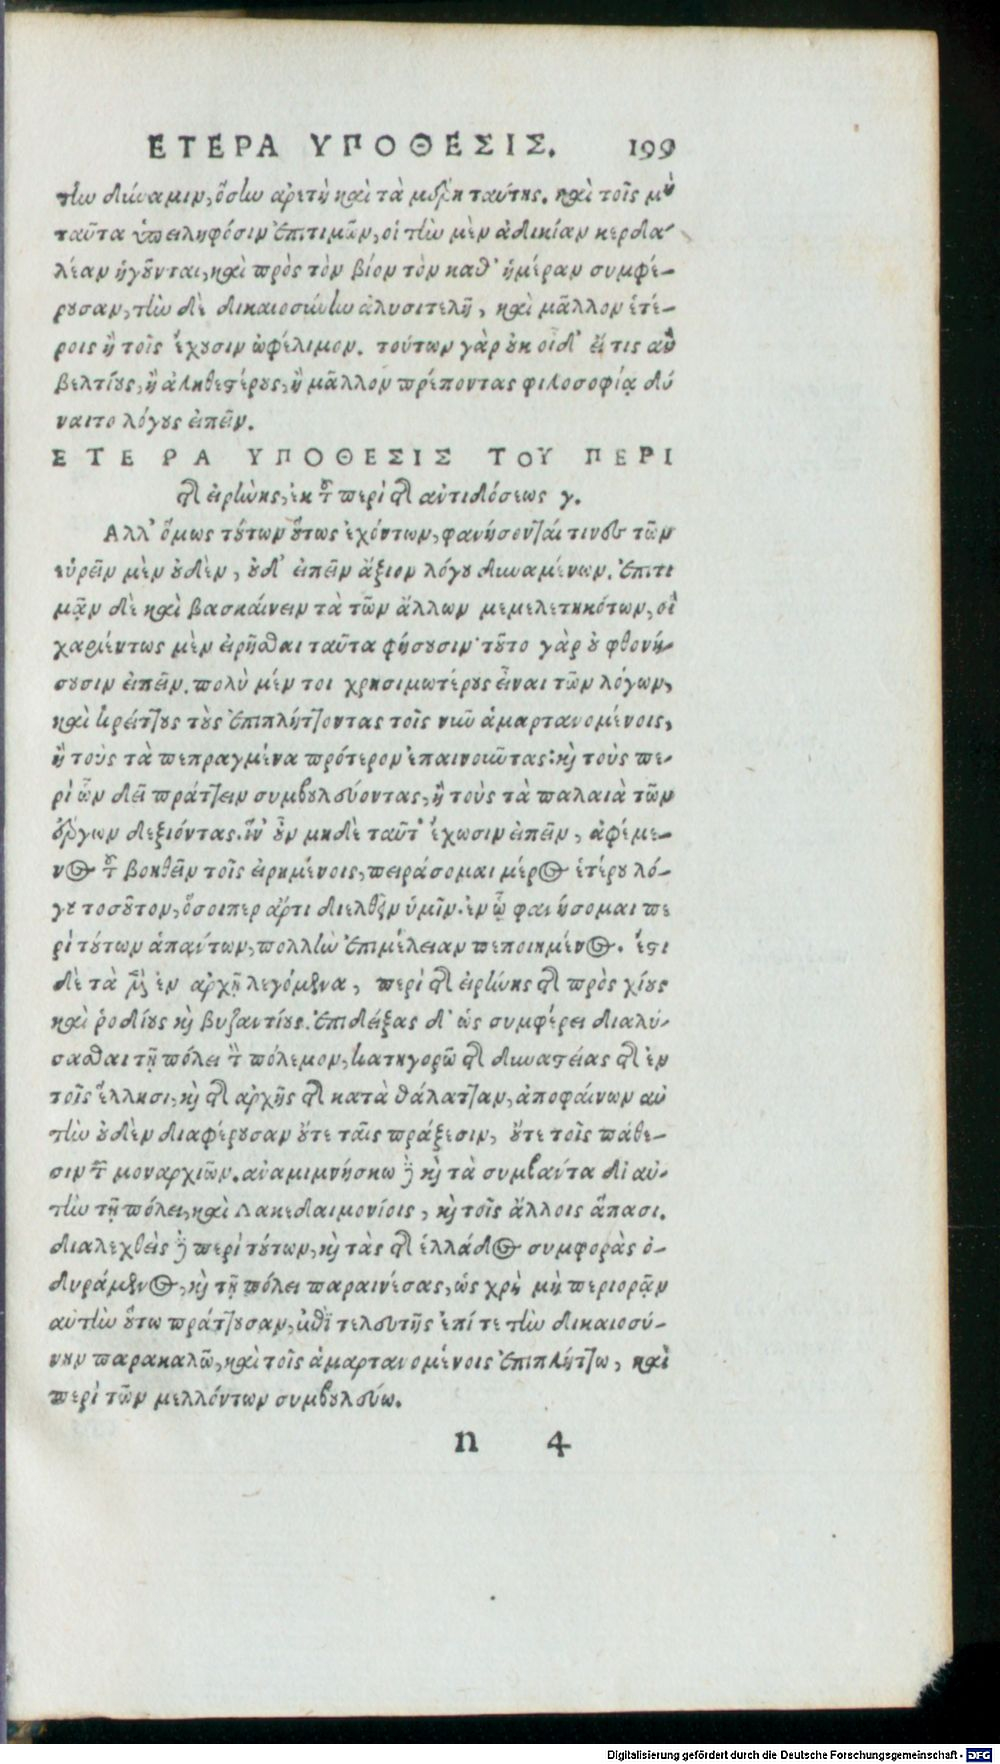 ΕΤΕΡΑ ΥΠΟΘΕΣΙΣ. 199
τὴν δύναμιν, ὅσην ἀρετὴ καὶ τὰ μέρη ταύτης. καὶ τοῖς μὴ
ταῦτα ὑπειληφόσιν ἐπιτιμῶν, οἳ τὴν μὲν ἀδικίαν κερδα-
λέαν ἡγοῦνται, καὶ πρὸς τὸν βίον τὸν καθ' ἡμέραν συμφέ-
ρουσαν, τὴν δὲ δικαιοσύνην ἀλυσιτελῆ, καὶ μᾶλλον ἑτέ-
ροις ἢ τοῖς ἔχουσιν ὠφέλιμον. τούτων γὰρ οὐκ οἶδ' εἴ τις ἂν
βελτίους, ἢ ἀληθεστέρους, ἢ μᾶλλον πρέποντας φιλοσοφίᾳ δύ
ναιτο λόγους εἰπεῖν.
ΕΤΕΡΑ ΥΠΟΘΕΣΙΣ ΤΟΥ ΠΕΡΙ
τῆς εἰρήνης, ἐκ τοῦ περὶ τῆς ἀντιδόσεως γ.
Αλλ' ὅμως τούτων οὕτως ἐχόντων, φανήσονταί τινες τῶν
εὑρεῖν μὲν οὐδὲν, οὐδ' εἰπεῖν ἄξιον λόγου δυναμένων. ἐπιτι
μᾷν δὲ καὶ βασκαίνειν τὰ τῶν ἄλλων μεμελετηκότων, οἳ
χαριέντως μὲν εἰρῆσθαι ταῦτα φήσουσιν· τοῦτο γὰρ οὐ φθονή-
σουσιν εἰπεῖν. πολὺ μέν τοι χρησιμωτέρους εἶναι τῶν λόγων,
καὶ κρείττους τοὺς ἐπιπλήττοντας τοῖς νῦν ἁμαρτανομένοις,
ἢ τοὺς τὰ πεπραγμένα πρότερον ἐπαινοῦντας: καὶ τοὺς πε-
ρὶ ὧν δεῖ πράττειν συμβουλεύοντας, ἢ τοὺς τὰ παλαιὰ τῶν
ἔργων δεξιόντας. ἵν' οὖν μηδὲ ταῦτ' ἔχωσιν εἰπεῖν, ἀφέμε-
νος τοῦ βοηθεῖν τοῖς εἰρημένοις, πειράσομαι μέρος ἑτέρου λό-
γου τοσοῦτον, ὅσοιπερ ἄρτι διελθεῖν ὑμῖν. ἐν ᾧ φανήσομαι πε
ρὶ τούτων ἁπάντων, πολλὴν ἐπιμέλειαν πεποιημένος. ἔστι
δὲ τὰ μὲν ἐν ἀρχῇ λεγόμενα, περὶ τῆς εἰρήνης τῆς πρὸς χίους
καὶ ῥοδίους καὶ βυζαντίους. ἐπιδείξας δ' ὡς συμφέρει διαλύ-
σασθαι τῇ πόλει τὸν πόλεμον, κατηγορῶ τῆς δυναστείας τῆς ἐν
τοῖς ἕλλησι, καὶ τῆς ἀρχῆς τῆς κατὰ θάλατταν, ἀποφαίνων αὐ
τὴν οὐδὲν διαφέρουσαν οὔτε ταῖς πράξεσιν, οὔτε τοῖς πάθε-
σιν τῶν μοναρχιῶν. ἀναμιμνήσκω δὲ καὶ τὰ συμβάντα δι' αὐ-
τὴν τῇ πόλει, καὶ Λακεδαιμονίοις, καὶ τοῖς ἄλλοις ἅπασι.
διαλεχθεὶς δὲ περὶ τούτων, καὶ τὰς τῆς ἑλλάδος συμφορὰς ὀ-
δυράμενος, καὶ τῇ πόλει παραινέσας, ὡς χρὴ μὴ περιορᾷν
αὑτὴν οὕτω πράττουσαν, ἐπὶ τελευτῆς ἐπί τε τὴν δικαιοσύ-
νην παρακαλῶ, καὶ τοῖς ἁμαρτανομένοις ἐπιπλήττω, καὶ
περὶ τῶν μελλόντων συμβουλεύω.
n 4
Digitalisierung gefördert durch die Deutsche Forschungsgemeinschaft - DFG